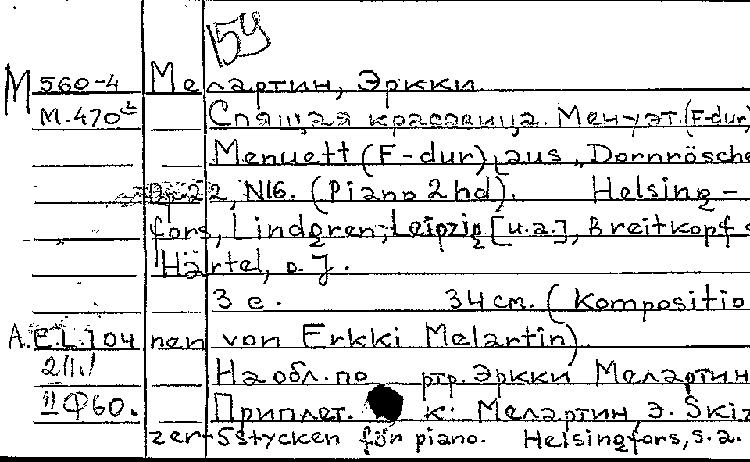 154
М 560-4 Мелартин, Эркки
М.470² Спящая красавица. Менуэт. (F-dur)
Menuett (F-dur), aus „Dornrösche
Op. 22, N16. (Piano 2 hd). Helsing-
fors, Lindgren; Leipzig [u.a.], Breitkopf &
Härtel, o. J.
3 с. 34 см. (Kompositio
A.E.L.104 nen von Erkki Melartin).
2(11.) На обл. по ртр. Эркки Мелартин
II Ф60. Приплет. к: Мелартин Э. Skiz
zer. 5 stycken för piano. Helsingfors, s.a.